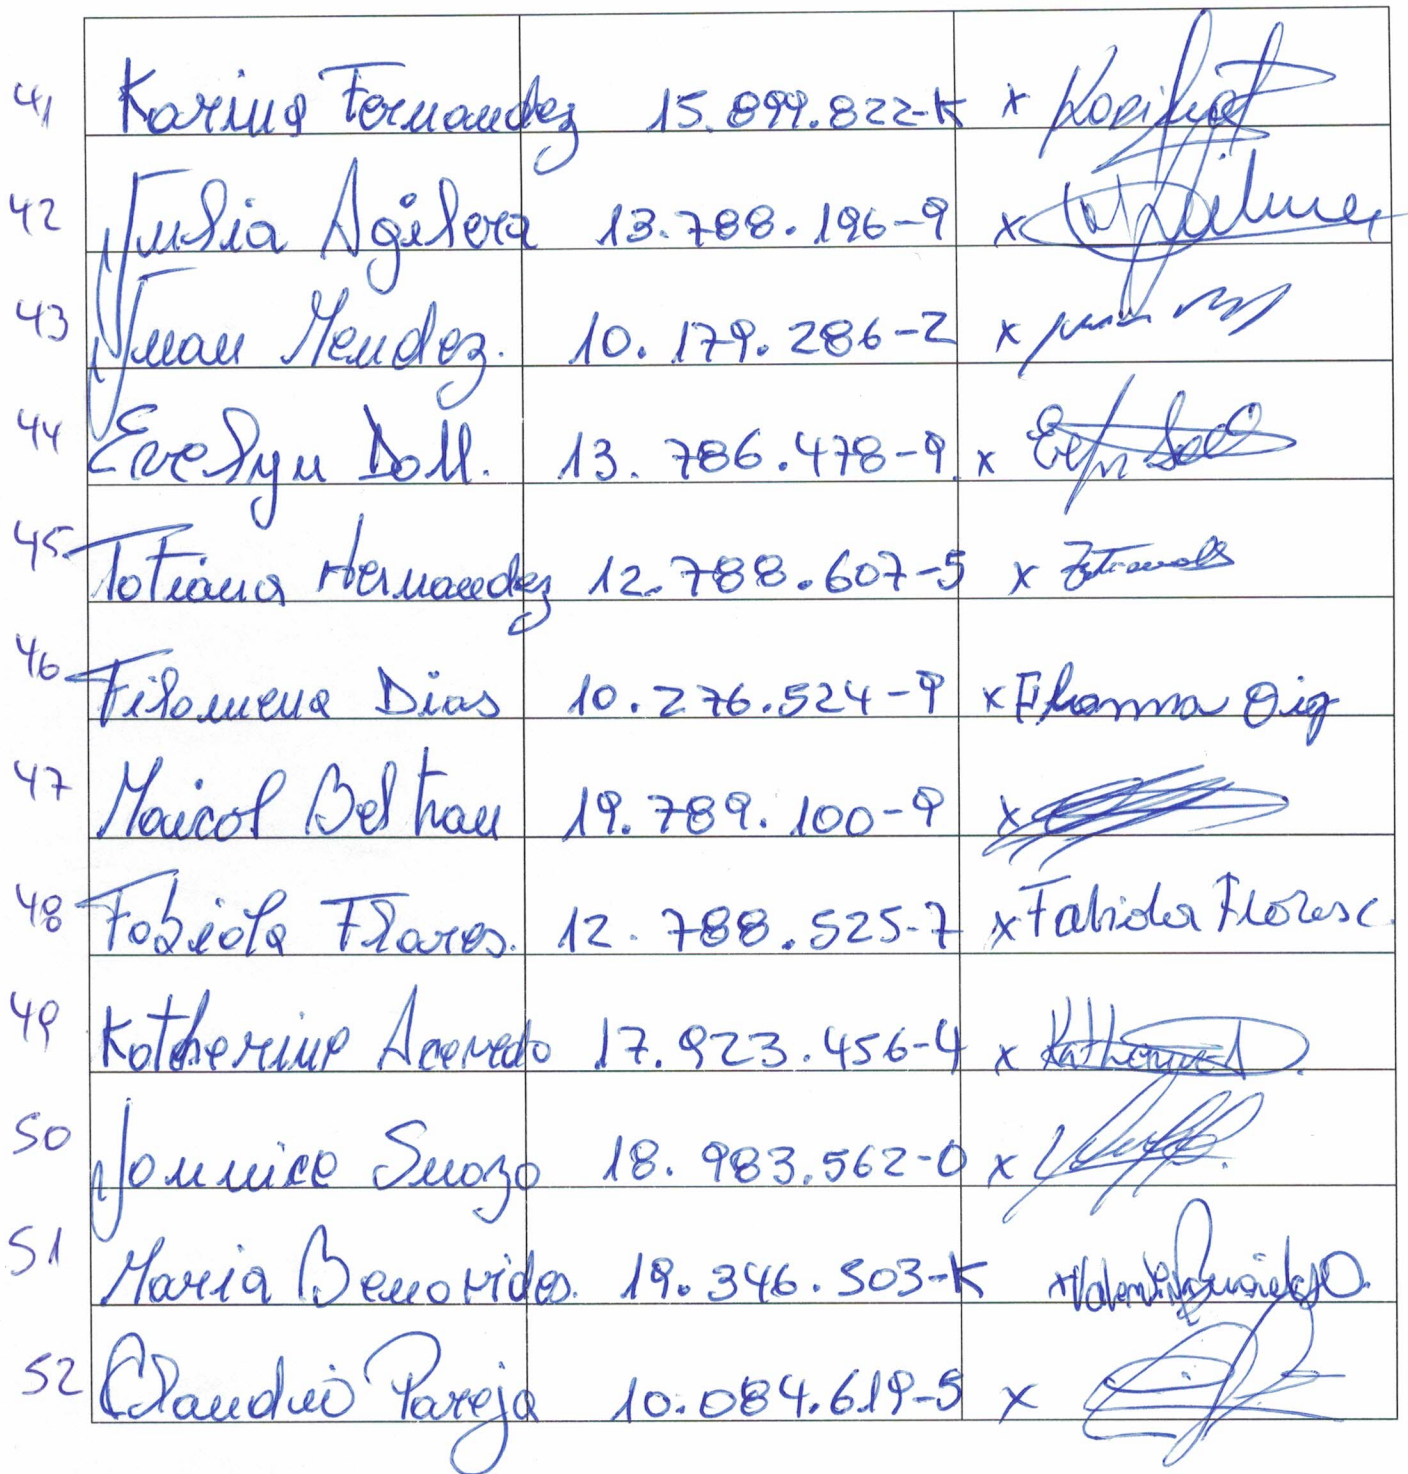 41 Karina Fernandez 15.899.822-K x
42 Julia Agilera 13.788.196-9 x
43 Juan Mendez. 10.179.286-2 x
44 Evelyn Doll. 13.786.478-9. x
45 Tatiana Hernandez 12.788.607-5 x
46 Filomena Dias 10.276.524-9 x
47 Maicol Beltran 19.789.100-9 x
48 Fabiola Flores. 12.788.525-7 x Fabiola Flores c.
49 Katherine Acevedo 17.923.456-4 x Katherine A
50 Suazo 18.983.562-0 x
51 Maria Benavides. 19.346.503-K x
52 Claudio Pareja 10.084.619-5 x